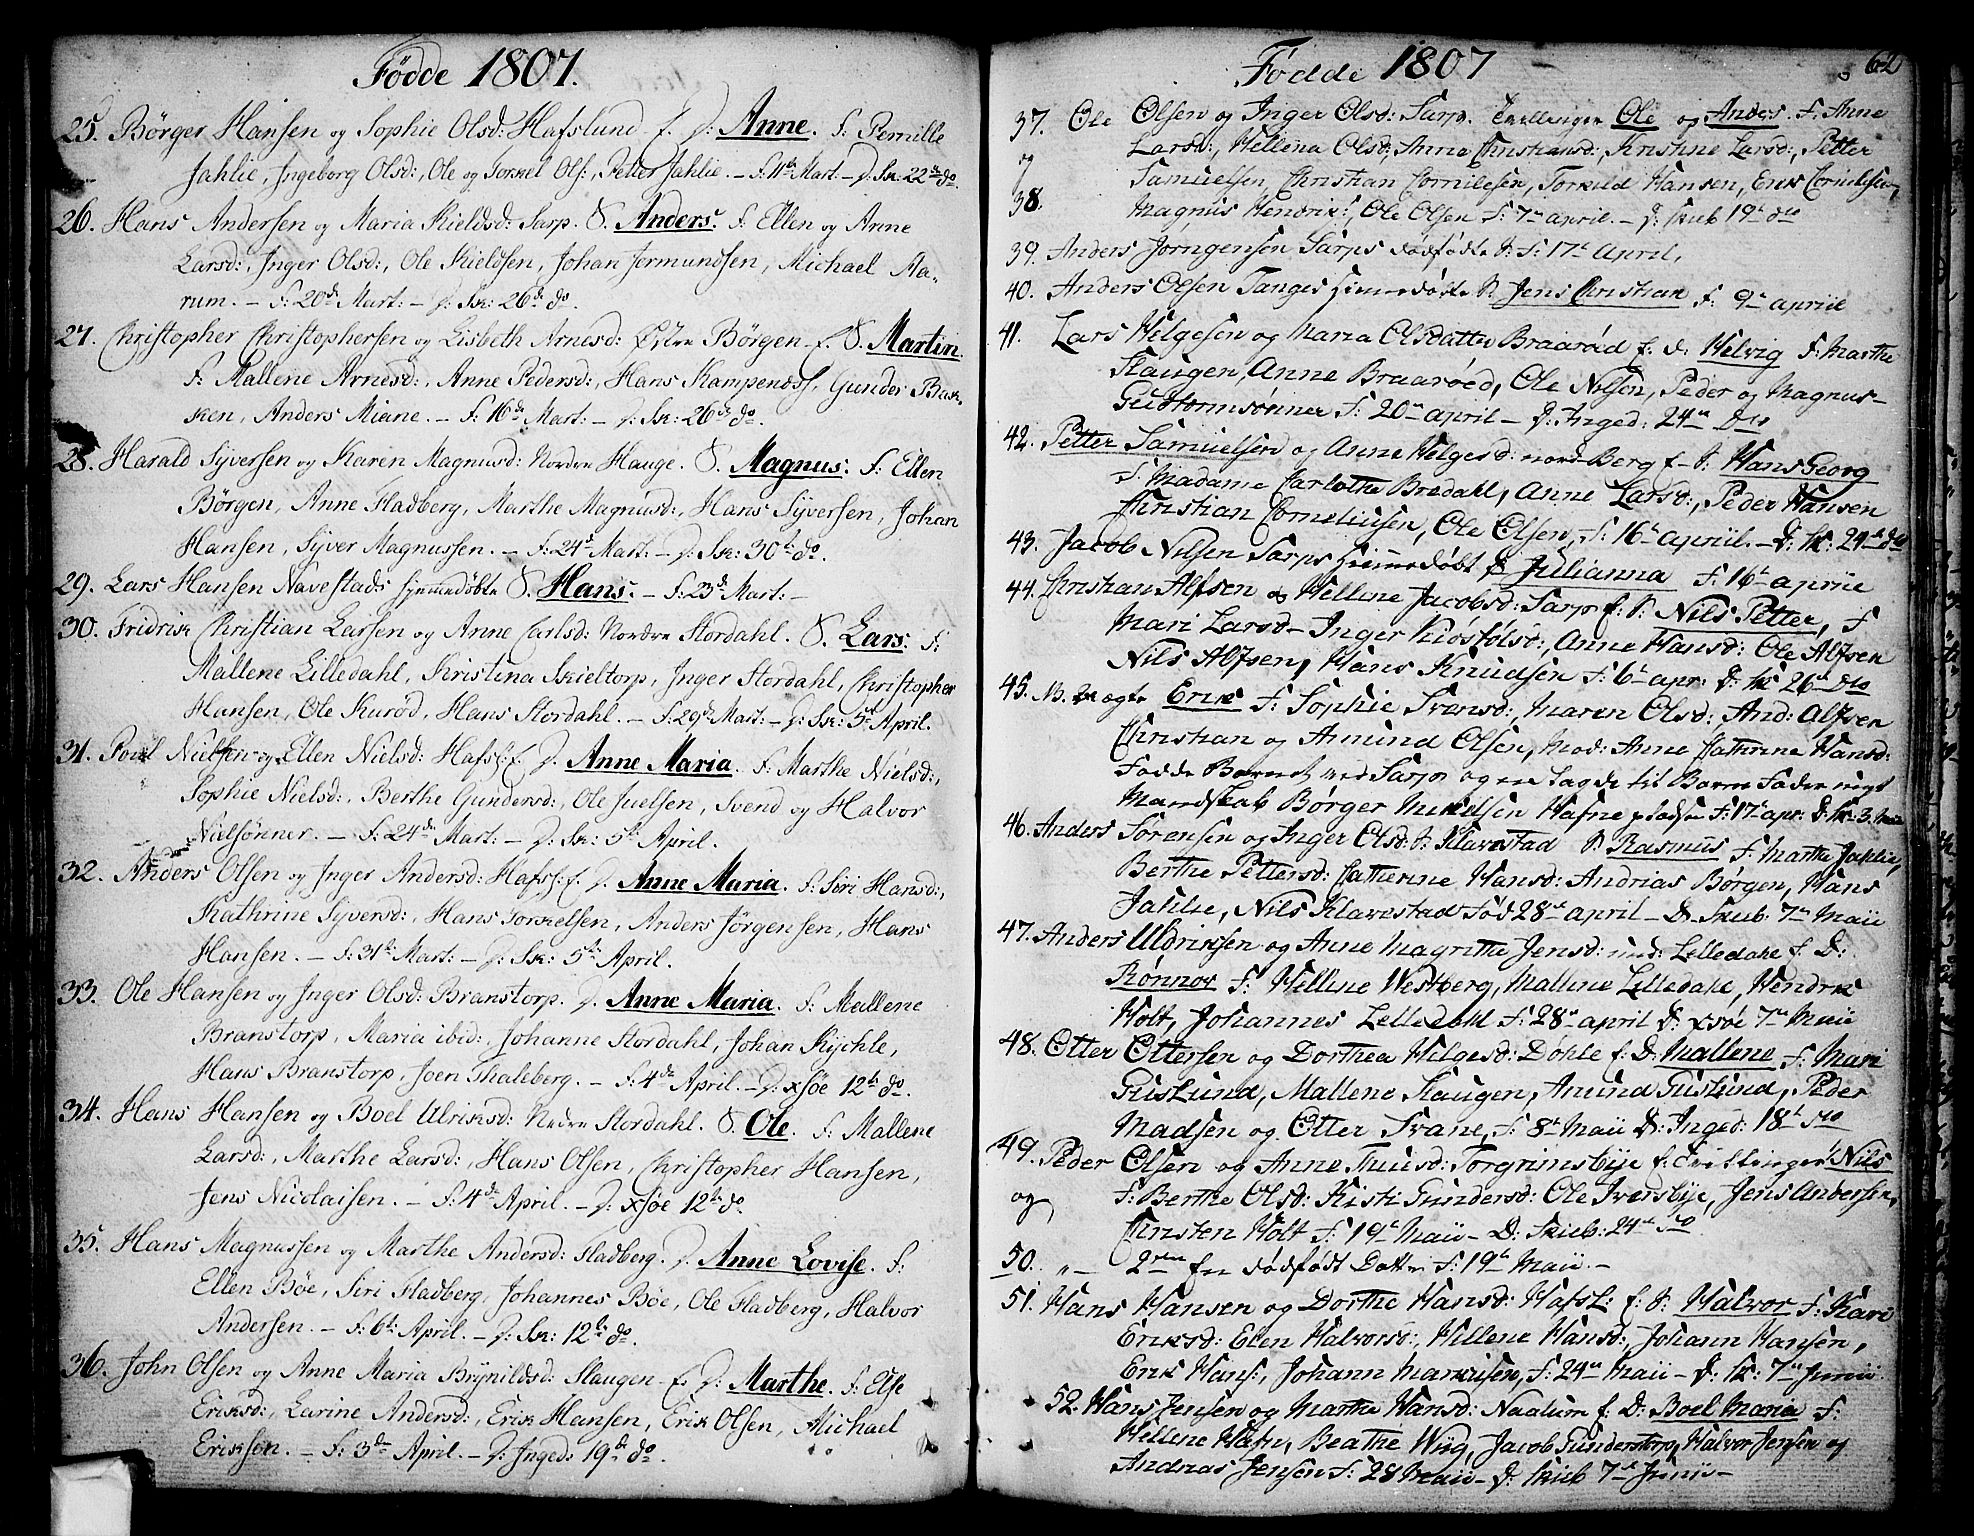 Födde 1807.
25. Børger Hansen og Sophie Olsd: Hafslund f. D: Anne. F: Pernille
Jahlie, Ingeborg Olsd:, Ole og Torkel Ols:, Petter Jahlie. – f: 11te Mart. – D: Sk: 22de do.
26. Hans Andersen og Maria Kieldsd: Sarp. S. Anders. F: Ellen og Anne
Larsd:, Inger Olsd:, Ole Kieldsen, Johan Jermundsen, Michael Aa-
rum. – f: 20de Mart: – D: Sk: 26de do.
27. Christopher Christophersen og Lisbeth Arnesd: Østre Børgen f. S. Martin.
F: Mallene Arnesd:, Anne Pedersd:, Hans Kampenæss, Gunder Bak-
ken, Anders Miane. – f: 16de Mart: – D: Sk: 26de do.
28. Harald Syversen og Karen Magnusd: Nordre Hauge. S. Magnus. F: Ellen
Børgen, Anne Fladberg, Marthe Magnusd:, Hans Syversen, Johan
Hansen, Syver Magnussen. – f: 24de Mart: – D: Sk: 30te do.
29. Lars Hansen Navestads hjemmedøbte S. Hans. – f: 23de Mart: –
30. Fridrik Christian Larsen og Anne Carlsd: Nordre Stordahl. S. Lars. F:
Mallene Lilledahl, Kristina Skieltorp, Inger Stordahl, Christopher
Hansen, Ole Kurød, Hans Stordahl. – f: 29de Mart: – D: Sk: 5te April.
31. Povl Nielsen og Ellen Nielsd: Hafsl: f. D. Anne Maria. F: Marthe Nielsd:,
Sophie Nielsd:, Berthe Gundersd:, Ole Juelsen, Svend og Halvor
Nielsønner. – f: 24de Mart: – D: Sk: 5te April.
32. Anders Olsen og Inger Andersd: Hafsl: f. D. Anne Maria. F: Siri Hansd:,
Kathrine Syversd:, Hans Torkelsen, Anders Jørgensen, Hans
Hansen. – f: 31te Mart: – D: Sk: 5te April.
33. Ole Hansen og Inger Olsd: Branstorp. D. Anne Maria. F: Mallene
Branstorp, Maria ibid:, Johanne Stordahl, Johan Kychle,
Hans Branstorp, Joen Thaleberg. – f: 4de April. – D: xsöe 12te do.
34. Hans Hansen og Boel Ulriksd: Nedre Stordahl. S. Ole. F: Mallene
Larsd:, Marthe Larsd:, Hans Olsen, Christopher Hansen,
Jens Nicolaisen. – f: 4de April. – D: xsöe 12te do.
35. Hans Magnussen og Marthe Andersd: Fladberg. D. Anne Lovise. F:
Ellen Böe, Siri Fladberg, Johannes Böe, Ole Fladberg, Halvor
Andersen. – f: 6te April. – D: Sk: 12te do.
36. John Olsen og Anne Maria Brynildsd: Skaugen f. D: Marthe. F: Else
Eriksd:, Larine Andersd:, Erik Hansen, Erik Olsen, Michael
Eriksen. – f: 3de April. – D: Inged: 19de do.
Födde 1807
62
37. Ole Olsen og Inger Olsd: Sarp. Tvillinger Ole og Anders. F: Anne
og Larsd:, Hellena Olsd, Anne Christiansd:, Kristine Larsd:, Petter
Samuelsen, Christian Cornilesen, Torkild Hansen, Erik Cornilesen,
38. Magnus Hendriks:, Ole Olsen f: 7de april. – D: skub 19de do
39. Anders Jörngensen Sarps dödfödte S. f: 17de April.
40. Anders Olsen Tanges hiemmedöbte S. Jens Christian f: 9de apriil
41. Lars Helgesen og Maria Olsdatter Braaröd f: D: Helvig F: Marthe
Skaugen, Anne Braaröed, Ole Nilsen, Peder og Magnus
Guttormsönner f: 20de april – D: Inged: 24de dto
42. Petter Samuelsen og Anne Helgesd: nord Berg f – S: Hans Georg
F: Madame Carlothe Bredahl, Anne Larsd:, Peder Hansen
Christian Corneliusen, Ole Olsen, f: 16de apriil. – D: sk: 24de do
43. Jacob Nilsen Sarps hiemmedöbt D Julianna f: 16de apriil
44. Christian Alfsen og Hellene Jacobsd: Sarp f: S: Nils Petter, F
Mari Larsd – Inger Kiöstolsd:, Anne Hansd: Ole Alfsen
Nils Alfsen, Hans Knudsen f: 6te apr: D: sk 26de dto
45. N. uægte Erik F: Sophie Svensd:, Maren Olsd: And: Alfsen
Christian og Amund Olsen, mod: Anne Cathrine Hansd:
Födde Barnet ved Sarp og udlagde til Barne Fader
Mandskab Börger Mikelsen Hafne pladsen f: 17de apr: D: sk: 3. Maii
46. Anders Sörensen og Inger Olsd: Klavestad S. Rasmus F: Marthe Jahlie,
Berthe Pettersd: Catherine Hansd: Andrias Börgen, Hans
Jahlie, Nils Klavestad född 28de april – D: Skub: 7de Maii
47. Anders Uldriksen og Anne Magrethe Jensd: ned: Lilledahl f: D:
Rönnov F: Hellene Westberg, Mallene Lilledahl, Hendrik
Holt, Johannes Lilledahl f: 28de april D: xsöe 7de Maii
48. Otter Ottersen og Dorthea Helgesd: Döhle f: D: Mallene F: Mari
Guslund, Mallene Skaugen, Amund Guslund, Peder
Madsen og Otter Trane, f: 8de Maii D: Inged: 18de do
49. Peder Olsen og Anne Thuisd: Torgrimsbye f: Tvillinger Nils
og F: Berthe Olsd: Kisti Gundersd: Ole Iversbye, Jens Andersen,
Christen Holt f: 19de Maii – D: Skub: 24de do
50. „ – 2den en dödfödt Datter f: 19de Maii. –
51. Hans Hansen og Dorthe Hansd: Hafsl: f: S: Halvor F: Kari
Eriksd: Elen Halvorsd:, Hellene Hansd:, Johann Hansen,
Erik Hans:, Johann Markusen, f: 24de Maii – D: sk: 7de Junii
52. Hans Jensen og Marthe Hansd: Nadum f: D: Boel Maria F:
Hellene Hafn, Beathe Wiig, Jacob Gunderstorp, Halvor Jensen og
Andrias Jensen f: 28 Maii – D: skub 7de Junii –